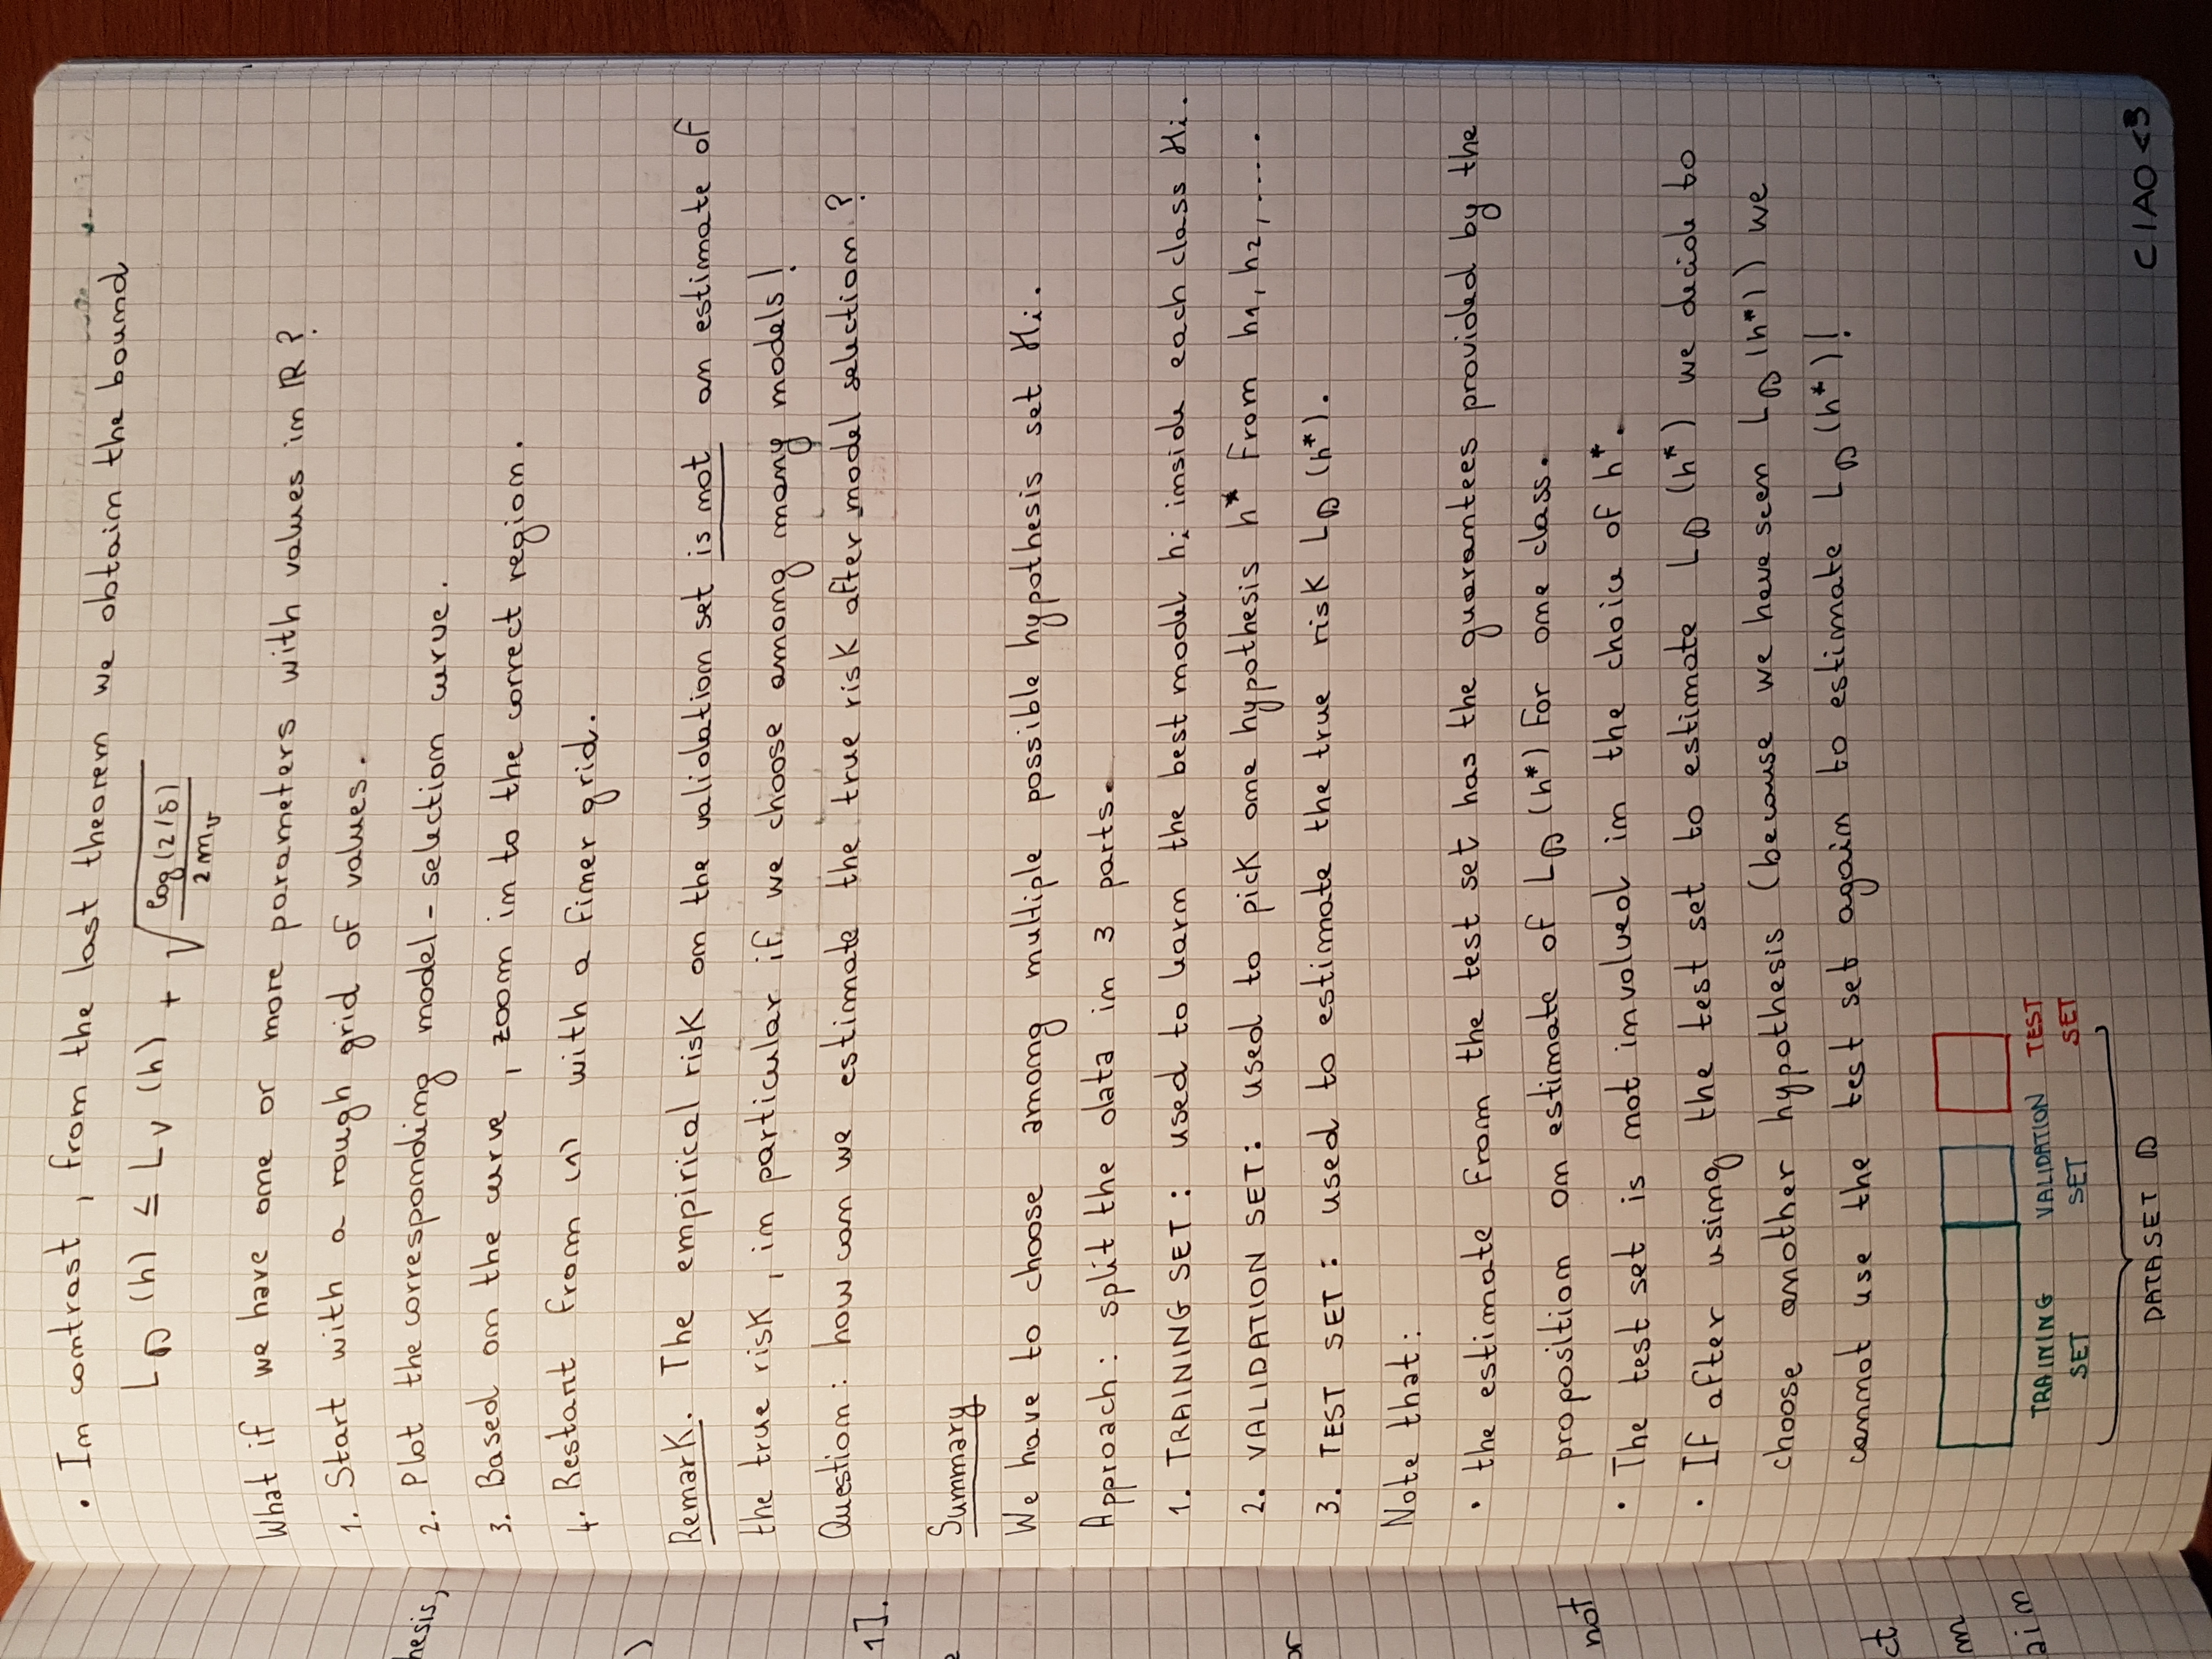 • In contrast, from the last theorem we obtain the bound
L_D (h) ≤ L_V (h) + √(log(2/δ) / 2m_v)
What if we have one or more parameters with values in ℝ?
1. Start with a rough grid of values.
2. Plot the corresponding model-selection curve.
3. Based on the curve, zoom in to the correct region.
4. Restart from (1) with a finer grid.
Remark. The empirical risk on the validation set is not an estimate of
the true risk, in particular if we choose among many models!
Question: how can we estimate the true risk after model selection?
Summary
We have to choose among multiple possible hypothesis set Hi.
Approach: split the data in 3 parts.
1. TRAINING SET: used to learn the best model hi inside each class Hi.
2. VALIDATION SET: used to pick one hypothesis h* from h1, h2, .....
3. TEST SET: used to estimate the true risk L_D (h*).
Note that:
• the estimate from the test set has the guarantees provided by the
proposition on estimate of L_D (h*) for one class.
• The test set is not involved in the choice of h*.
• If after using the test set to estimate L_D (h*) we decide to
choose another hypothesis (because we have seen L_D (h*)) we
cannot use the test set again to estimate L_D (h*)!
TRAINING SET
VALIDATION SET
TEST SET
DATASET D
CIAO <3
hesis,
)
1].
e
or
not
ct
m
ain